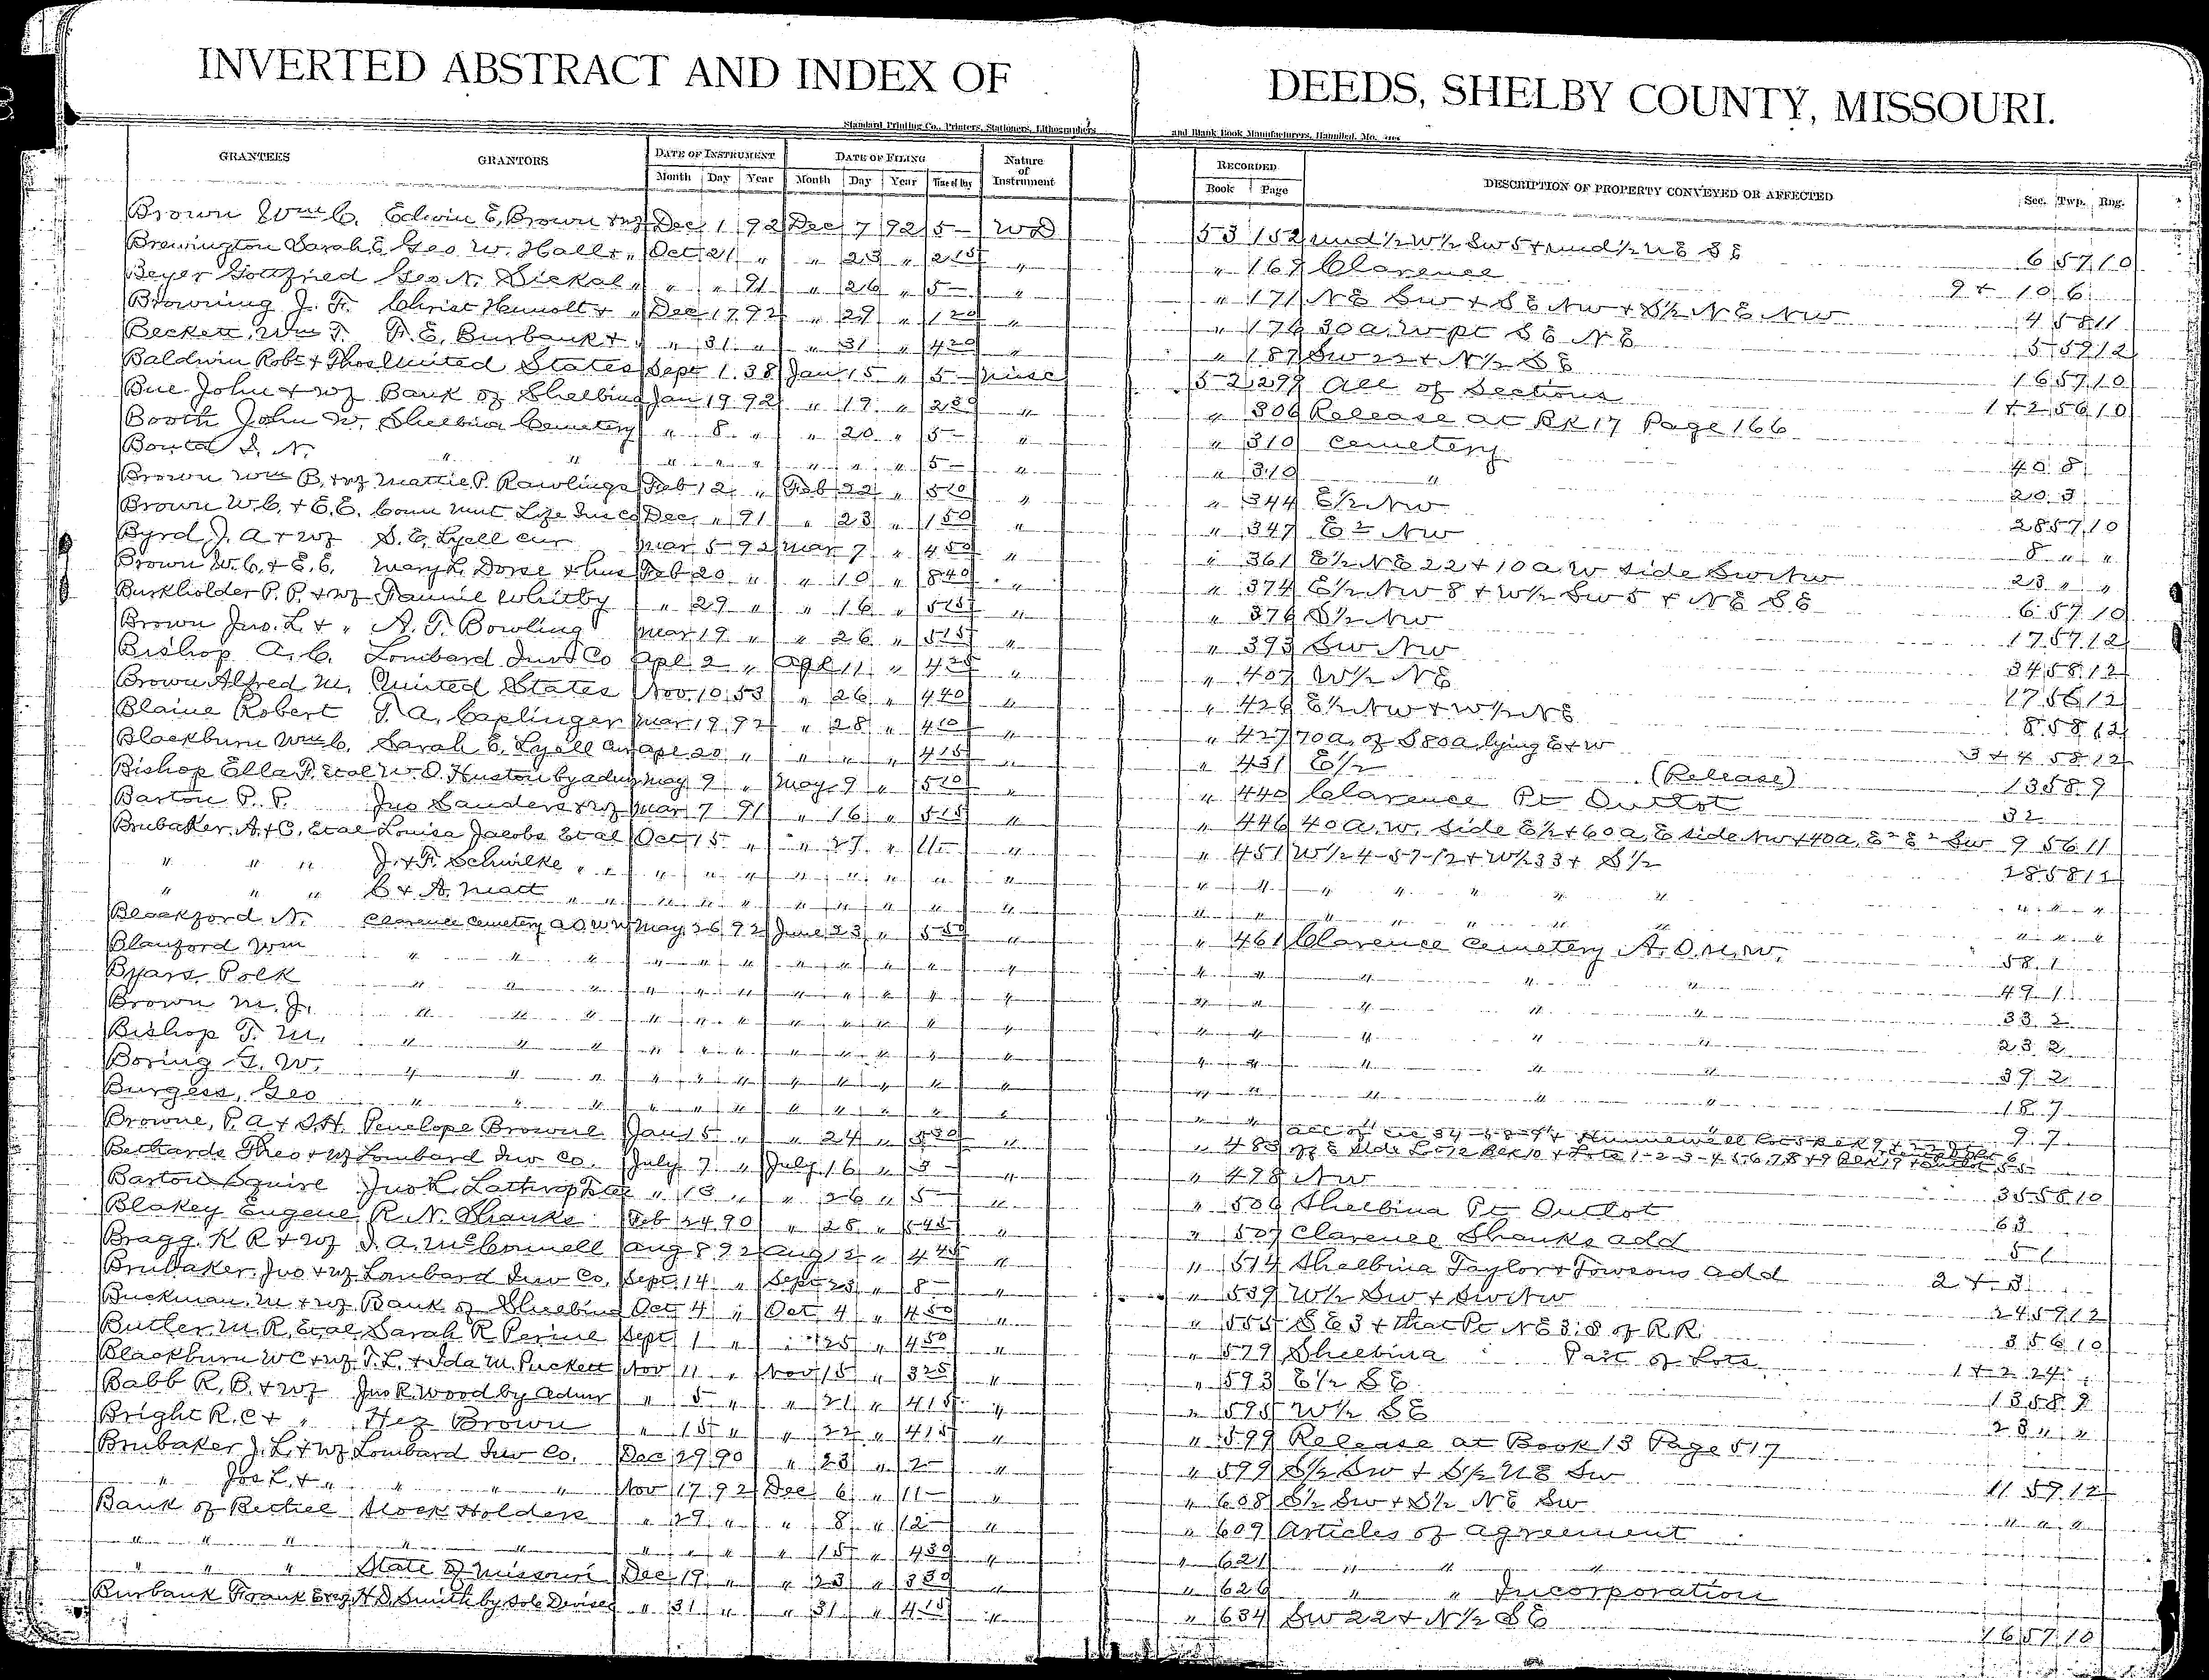 INVERTED ABSTRACT AND INDEX OF DEEDS, SHELBY COUNTY, MISSOURI.
Standard Printing Co., Printers, Stationers, Lithographers and Blank Book Manufacturers, Hannibal, Mo.
GRANTEES GRANTORS DATE OF INSTRUMENT DATE OF FILING Nature of Instrument RECORDED DESCRIPTION OF PROPERTY CONVEYED OR AFFECTED Sec. Twp. Rng.
Month Day Year Month Day Year Time of Day Book Page
Brown Wm C. Edwin E. Brown + wf Dec 1 92 Dec 7 92 5- WD 53 152 und 1/2 W 1/2 SW 5 + und 1/2 NE SE 6 57 10
Brewington Sarah E Geo W. Hall + " Oct 21 " " 23 " 2 15 " " 169 Clarence 9 + 10 6
Beyer Gottfried Geo N. Sickal " " " 91 " 26 " 5- " " 171 NE SW + SE NW + S 1/2 NE NW 4 58 11
Browning J. F. Christ + " Dec 17 92 " 29 " 1 20 " " 176 30 a. W pt SE NE 5 59 12
Beckett, Wm T. F. E. Burbank + " " 31 " " 31 " 4 20 " " 187 SW 22 + N 1/2 SE 16 57 10
Baldwin Robt + Thos United States Sept 1 38 Jan 15 " 5- Misc 52 299 All of Sections 1 + 2 56 10
Bue John + wf Bank of Shelbina Jan 19 92 " 19 " 2 30 " " 306 Release at BK 17 Page 166
Booth John W. Shelbina Cemetery " 8 " " 20 " 5- " " 310 Cemetery 40 8
" " " " " " " " 5- " " 310 " 20 3
Brown Wm B. + wf Mattie P. Rawlings Feb 12 " Feb 22 " 5 10 " " 344 E 1/2 NW 28 57 10
Brown W. C. + E. E. Conn Mut Life Ins Co Dec " 91 " 23 " 1 50 " " 347 E 2 NW 8 " "
Byrd J. A + wf S. E. Lyell Cur Mar 5 92 Mar 7 " 4 50 " " 361 E 1/2 NE 22 + 10 a W side SW NW 23 " "
Brown W. C. + E. E. Mary L. Dorse + hus Feb 20 " " 10 " 8 40 " " 374 E 1/2 NW 8 + W 1/2 SW 5 + NE SE 6 57 10
Burkholder P. P. + wf Fannie Whitby " 29 " " 16 " 5 15 " " 376 S 1/2 NW 17 57 12
Brown Jno. L + " A. T. Bowling Mar 19 " " 26 " 5 15 " " 393 SW NW 34 58 12
Bishop A. C. Lombard Inv Co Apl 2 " Apl 11 " 4 25 " " 407 W 1/2 NE 17 56 12
Brown Alfred M. United States Nov 10 53 " 26 " 4 40 " " 426 E 1/2 NW + W 1/2 NE 8 58 12
Blaine Robert T. A. Caplinger Mar 19 92 " 28 " 4 10 " " 427 70 a. of S 80 a. lying E + W 3 + 4 58 12
Blackburn Wm C. Sarah E. Lyell Cur Apl 20 " " " " 4 15 " " 431 E 1/2 (Release) 13 58 9
Bishop Ella F. Etal W. O. Huston by adm May 9 " May 9 " 5 10 " " 440 Clarence Pt Outlot 32
Barton P. P. Jno Sanders + wf Mar 7 91 " 16 " 5 15 " " 446 40 a. W. side E 1/2 + 60 a. E side NW + 40 a. E 2 E 2 SW 9 56 11
Brubaker A. + C. Etal Louisa Jacobs Etal Oct 15 " " 27 " 11- " " 451 W 1/2 4-57-12 + W 1/2 33 + S 1/2 28 58 12
" " " J. + F. Schwilke " " " " " " " " " " " " " " " " " " " "
" " " C + A. Matt " " " " " " " " " " " " " " " " " " "
Blackford N. Clarence Cemetery A O U W May 26 92 June 23 " 5 50 " " 461 Clarence Cemetery A. O. U. W. 58 1
Blanford Wm " " " " " " " " " " " " " " " " 49 1
Byars Polk " " " " " " " " " " " " " " " 33 2
Brown M. J. " " " " " " " " " " " " " " " 23 2
Bishop T. M. " " " " " " " " " " " " " " " 39 2
Boring G. W. " " " " " " " " " " " " " " " 18 7
Burgess, Geo " " " " " " " " " " " " " " " 9 7
Browne, P. A + S. H. Penelope Browne Jan 15 " " 24 " 5 30 " " 483
Bethards Theo + wf Lombard Inv Co. July 7 " July 16 " 3- " " 498 NW 35 58 10
Barton Squire Jno L. Lathrop Tstee " 13 " " 26 " 5- " " 506 Shelbina Pt Outlot 63
Blakey Eugene R. N. Shanks Feb 24 90 " 28 " 5 45 " " 507 Clarence Shanks add 5 1
Bragg. K R + wf J. A. McConnell Aug 8 92 Aug 12 " 4 45 " " 514 Shelbina Taylor + Towsons add 2 + 3
Brubaker Jno + wf Lombard Inv Co. Sept 14 " Sept 23 " 8- " " 539 W 1/2 SW + SW NW 24 59 12
Buckman M + wf Bank of Shelbina Oct 4 " Oct 4 " 4 50 " " 555 SE 3 + that Pt NE 3 S of R.R. 3 56 10
Butler M. R. Etal Sarah R Perine Sept 1 " " 25 " 4 50 " " 579 Shelbina Part of Lots 1 + 2 24
Blackburn W C + wf T. L. + Ida M. Puckett Nov 11 " Nov 15 " 3 25 " " 593 E 1/2 SE 13 58 9
Babb R. B. + wf Jno R. Wood by Admr " 5 " " 21 " 4 15 " " 595 W 1/2 SE 23 " "
Bright R. C + " Hez Brown " 15 " " 22 " 4 15 " " 599 Release at Book 13 Page 517
Brubaker J. L. + wf Lombard Inv Co. Dec 29 90 " 23 " 2- " " 599 S 1/2 SW + S 1/2 NE SW 11 59 12
" Jos L. + " " " " Nov 17 92 Dec 6 " 11- " " 608 S 1/2 SW + S 1/2 NE SW " " "
Bank of Bethel Stock Holders " 29 " " 8 " 12- " " 609 Articles of Agreement
" " " " " " " " " 15 " 4 30 " " 621 " " "
" " " State of Missouri Dec 19 " " 23 " 3 30 " " 626 " " Incorporation
Burbank Frank H. D. Smith by Sole Devisee " 31 " " 31 " 4 15 " " 634 SW 22 + N 1/2 SE 16 57 10